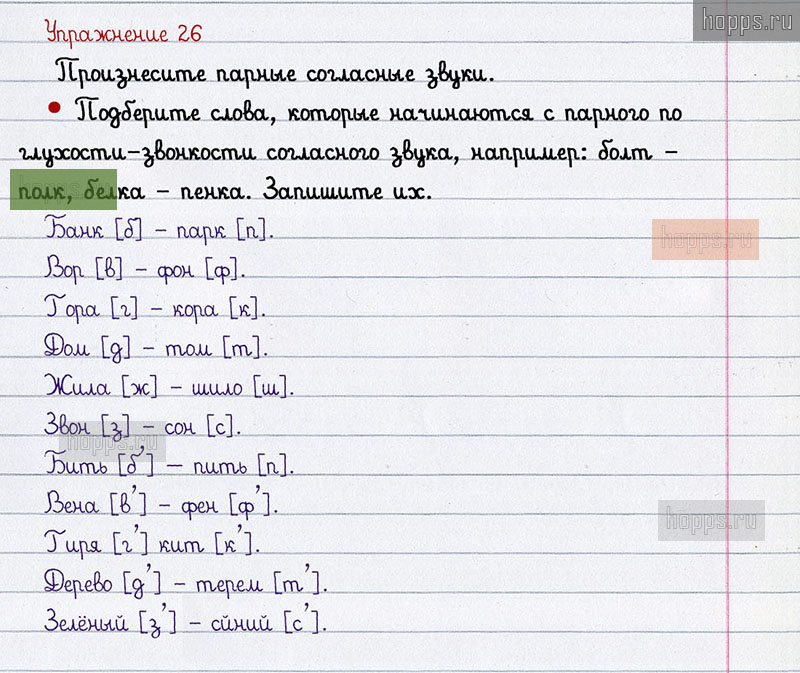 hopps.ru
Упражнение 26
Произнесите парные согласные звуки.
• Подберите слова, которые начинаются с парного по
глухости-звонкости согласного звука, например: болт –
полк, белка – пенка. Запишите их.
Банк [б] – парк [п].
hopps.ru
Вор [в] – фон [ф].
Гора [г] – кора [к].
Дом [д] – том [т].
Жила [ж] – шило [ш].
Звон [з] – сон [с].
hopps.ru
Бить [б'] – пить [п].
Вена [в'] – фен [ф'].
hopps.ru
Гиря [г'] кит [к'].
Дерево [д'] – терем [т'].
Зелёный [з'] – сйний [с'].